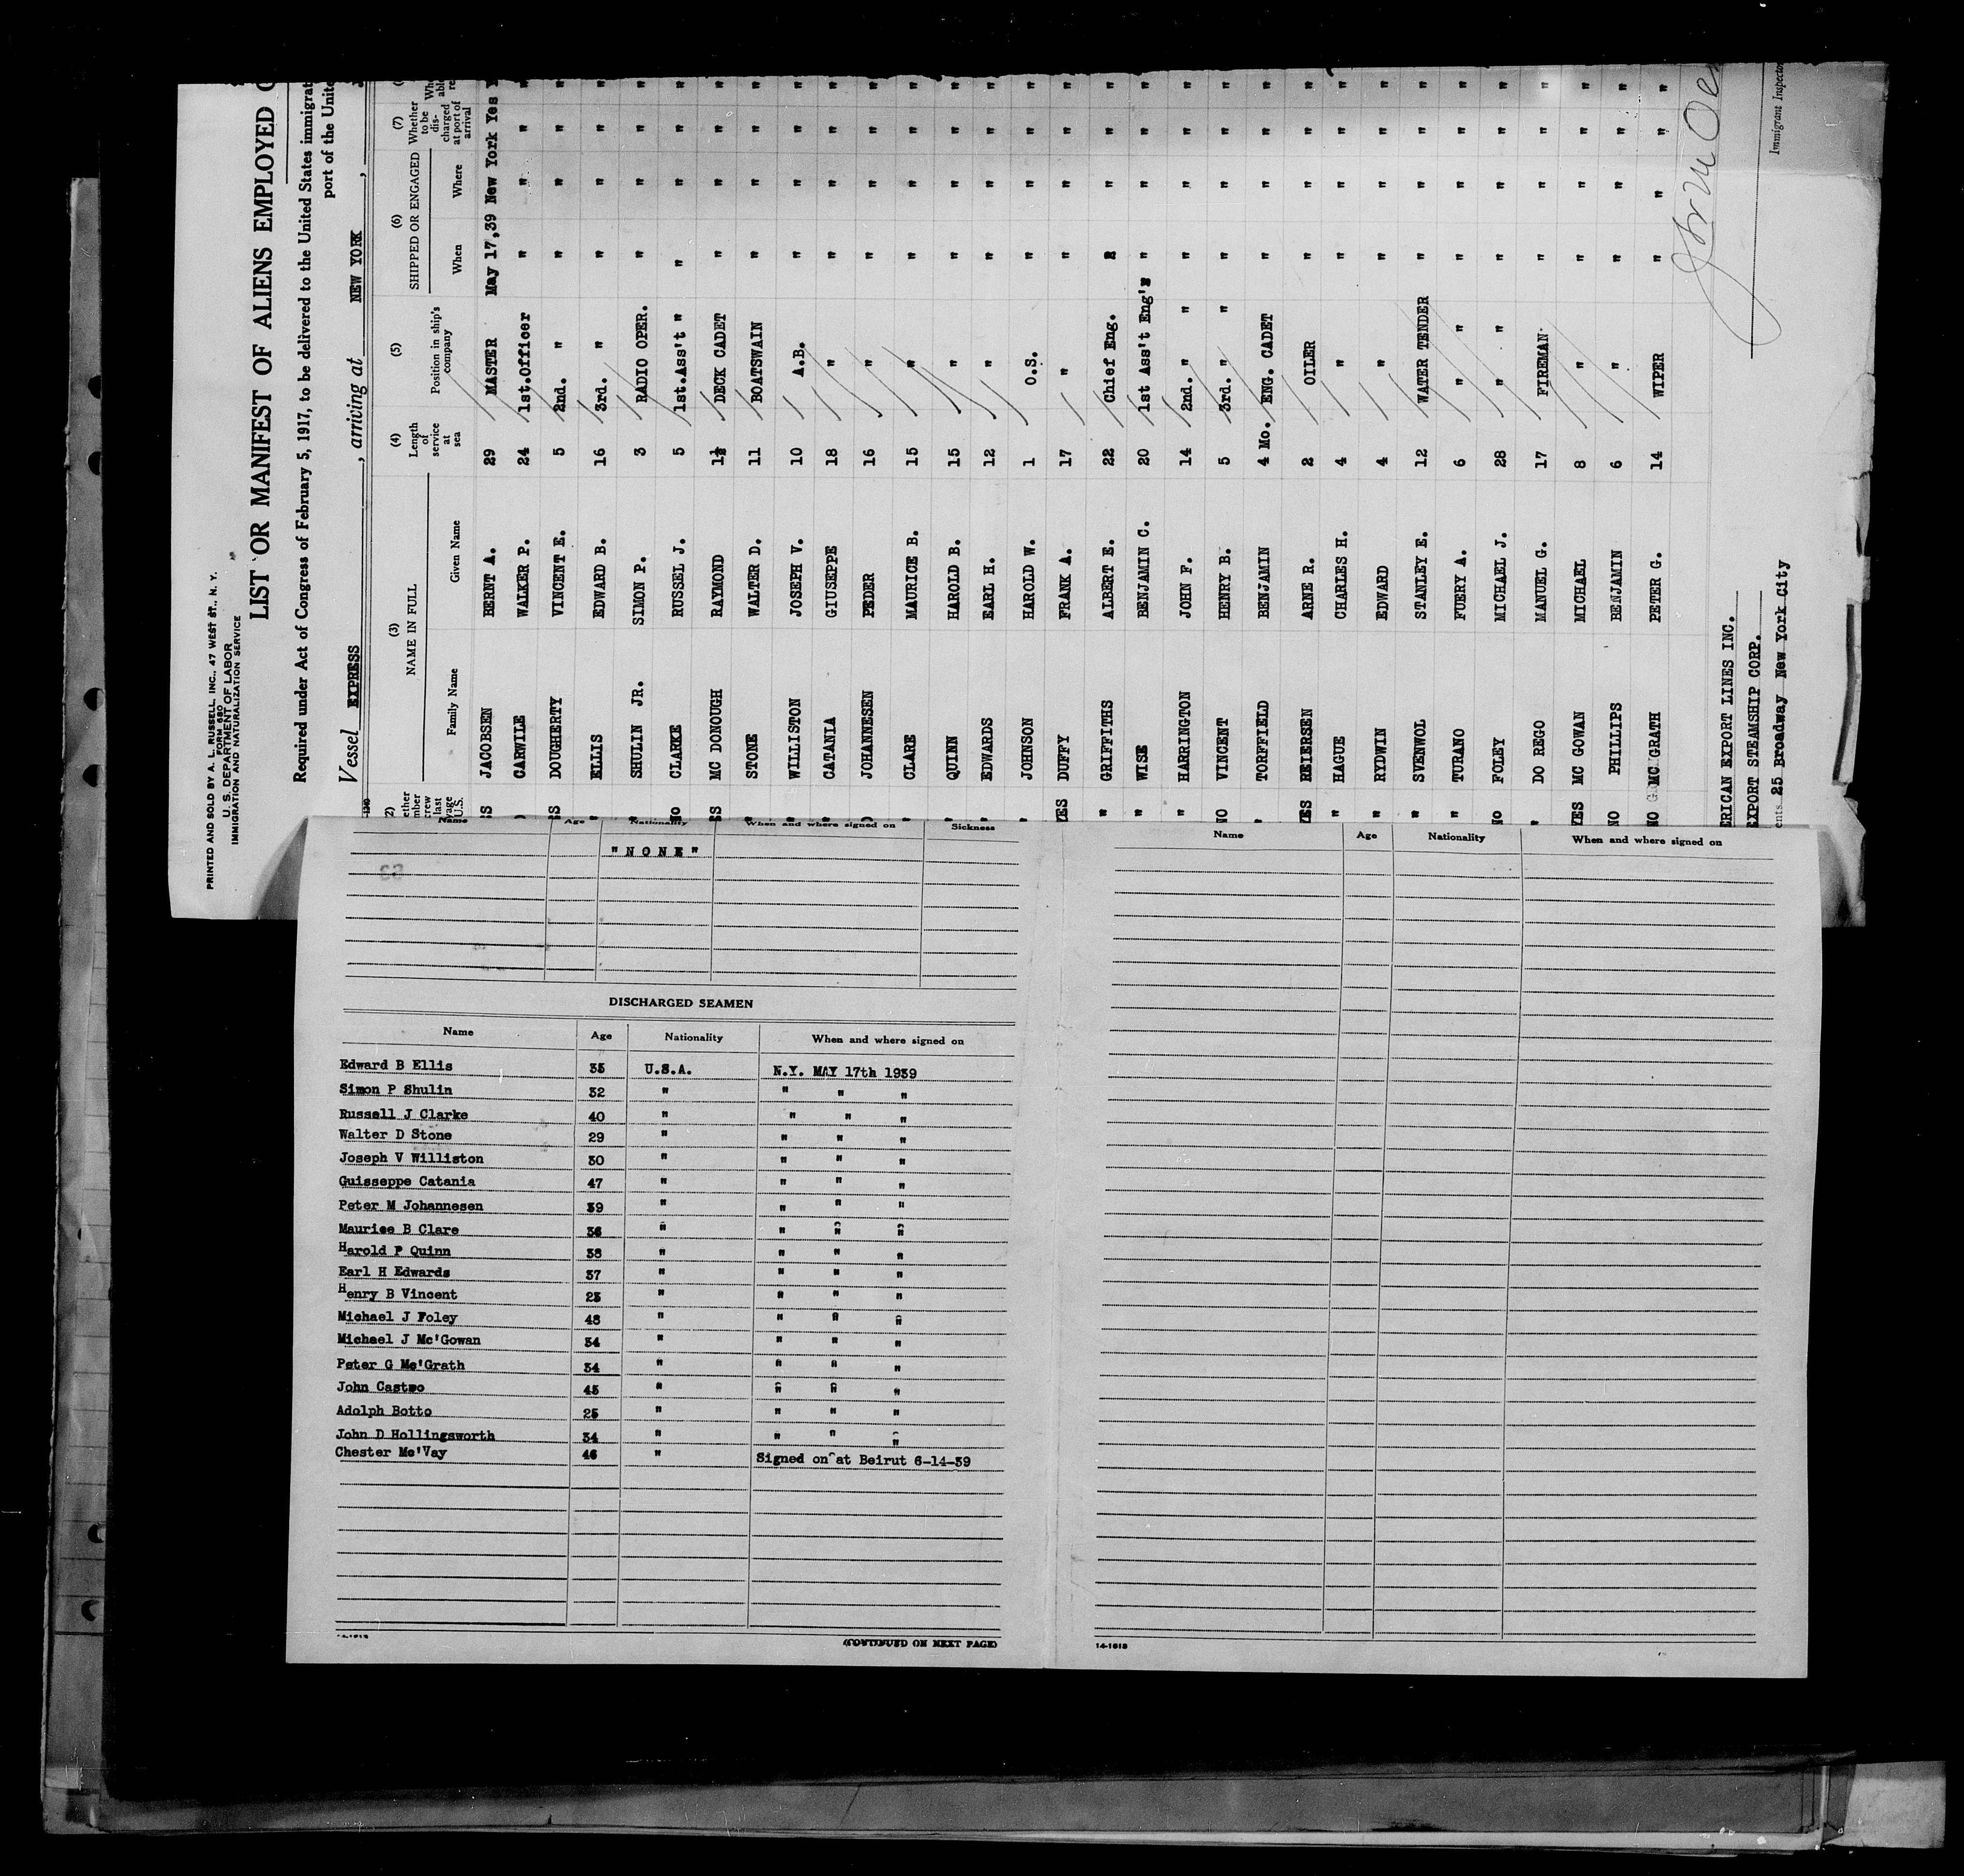 PRINTED AND SOLD BY A. L. RUSSELL, INC., 47 WEST ST., N. Y.
FORM 680
U. S. DEPARTMENT OF LABOR
IMMIGRATION AND NATURALIZATION SERVICE
LIST OR MANIFEST OF ALIENS EMPLOYED O
Required under Act of Congress of February 5, 1917, to be delivered to the United States immigrat
port of the Unite
Vessel EXPRESS , arriving at NEW YORK ,
(3) (4) (5) (6) (7)
NAME IN FULL Length of service at sea Position in ship's company SHIPPED OR ENGAGED Whether to be dis- charged at port of arrival
Family Name Given Name When Where
JACOBSEN BERNT A. 29 MASTER May 17,39 New York Yes
CARWILE WALKER P. 24 1st.Officer " " " "
DOUGHERTY VINCENT E. 5 2nd. " " " " "
ELLIS EDWARD B. 16 3rd. " " " " "
SHULIN JR. SIMON P. 3 RADIO OPER. " " " "
NO CLARKE RUSSEL J. 5 1st.Ass't " " " " "
MC DONOUGH RAYMOND 1½ DECK CADET " " " "
STONE WALTER D. 11 BOATSWAIN " " " "
WILLISTON JOSEPH V. 10 A.B. " " " "
CATANIA GIUSEPPE 18 " " " " "
JOHANNESEN PEDER 16 " " " " "
CLARE MAURICE B. 15 " " " " "
QUINN HAROLD B. 15 " " " " "
EDWARDS EARL H. 12 " " " " "
JOHNSON HAROLD W. 1 O.S. " " " "
YES DUFFY FRANK A. 17 " " " " "
" GRIFFITHS ALBERT E. 22 Chief Eng. " " " "
" WISE BENJAMIN C. 20 1st Ass't Eng'r " " " "
" HARRINGTON JOHN F. 14 2nd. " " " " " "
NO VINCENT HENRY B. 5 3rd. " " " " " "
" TORFFIELD BENJAMIN 4 Mo. ENG. CADET " " " "
YES REIERSEN ARNE R. 2 OILER " " " "
" HAGUE CHARLES H. 4 " " " " "
" RYDWIN EDWARD 4 " " " " "
" SVENWOL STANLEY E. 12 WATER TENDER " " " "
" TURANO FUERY A. 6 " " " " " "
NO FOLEY MICHAEL J. 28 " " " " " "
" DO REGO MANUEL G. 17 FIREMAN " " " "
YES MC GOWAN MICHAEL 8 " " " " "
NO PHILLIPS BENJAMIN 6 " " " " "
NO MC GRATH PETER G. 14 WIPER " " " "
ERICAN EXPORT LINES INC.
EXPORT STEAMSHIP CORP.
ents 25 Broadway New York City
Immigrant Inspector
Name Age Nationality When and where signed on Sickness
"NONE"
DISCHARGED SEAMEN
Name Age Nationality When and where signed on
Edward B Ellis 35 U.S.A. N.Y. MAY 17th 1939
Simon P Shulin 32 " " " "
Russell J Clarke 40 " " " "
Walter D Stone 29 " " " "
Joseph V Williston 30 " " " "
Guisseppe Catania 47 " " " "
Peter M Johannesen 39 " " " "
Maurice B Clare 36 " " " "
Harold P Quinn 38 " " " "
Earl H Edwards 37 " " " "
Henry B Vincent 25 " " " "
Michael J Foley 48 " " " "
Michael J Mc'Gowan 34 " " " "
Peter G Mc'Grath 34 " " " "
John Castro 45 " " " "
Adolph Botto 25 " " " "
John D Hollingsworth 34 " " " "
Chester Mc'Vay 46 " Signed on at Beirut 6-14-39
(CONTINUED ON NEXT PAGE)
Name Age Nationality When and where signed on
14-1618